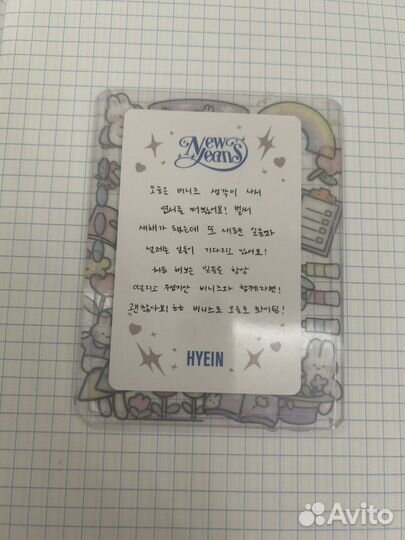 New Jeans
오늘은 버니즈 생각이 나서
엽서를 써봤어요! 벌써
새해가 됐는데 또 새로운 일들과
설레는 일들이 기다리고 있어요!
처음 해보는 일들은 항상
떨리고 무섭지만 버니즈와 함께라면!
괜찮아요! ㅎㅎ 버니즈도 오늘도 화이팅!
HYEIN
Avito